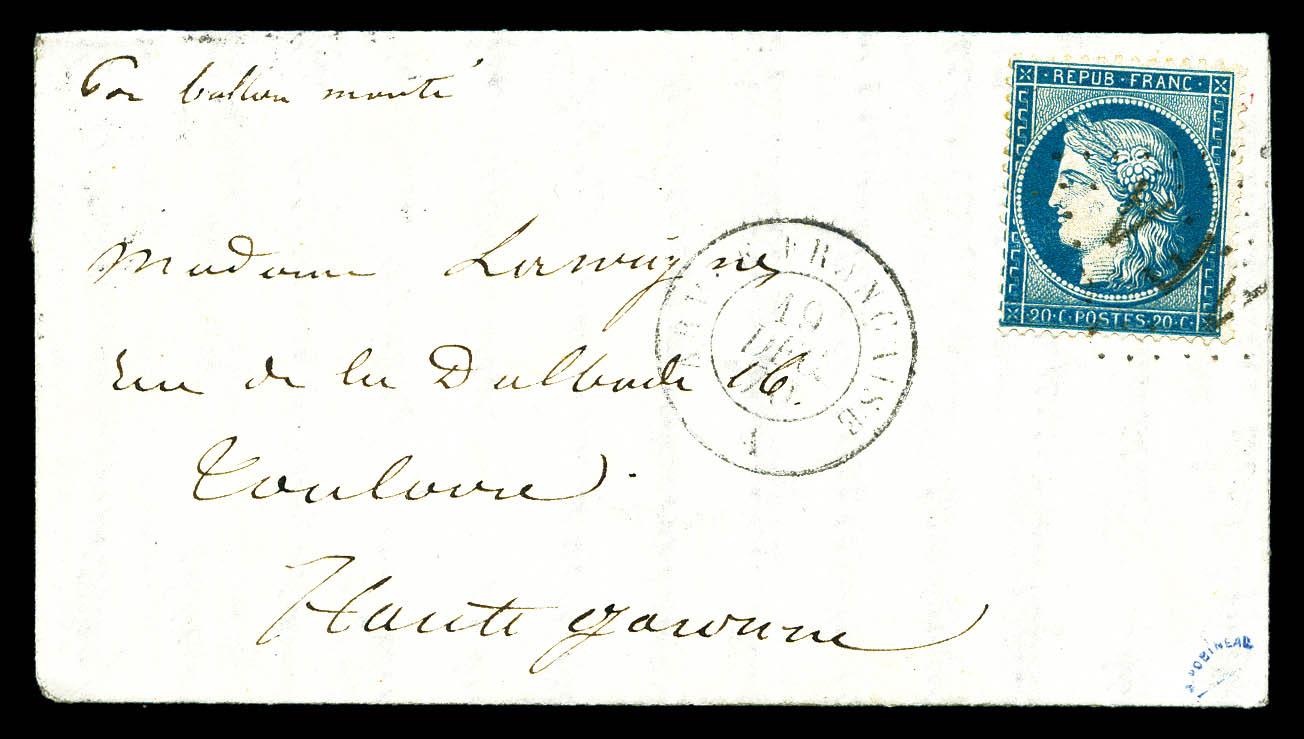 Par ballon monté
REPUB·FRANC
20·C·POSTES·20·C
Madame Lavigne
ARMÉE FRANÇAISE
19
DEC
A
rue de la Dalbade 16.
Toulouse
Haute garonne
ROBINEAU